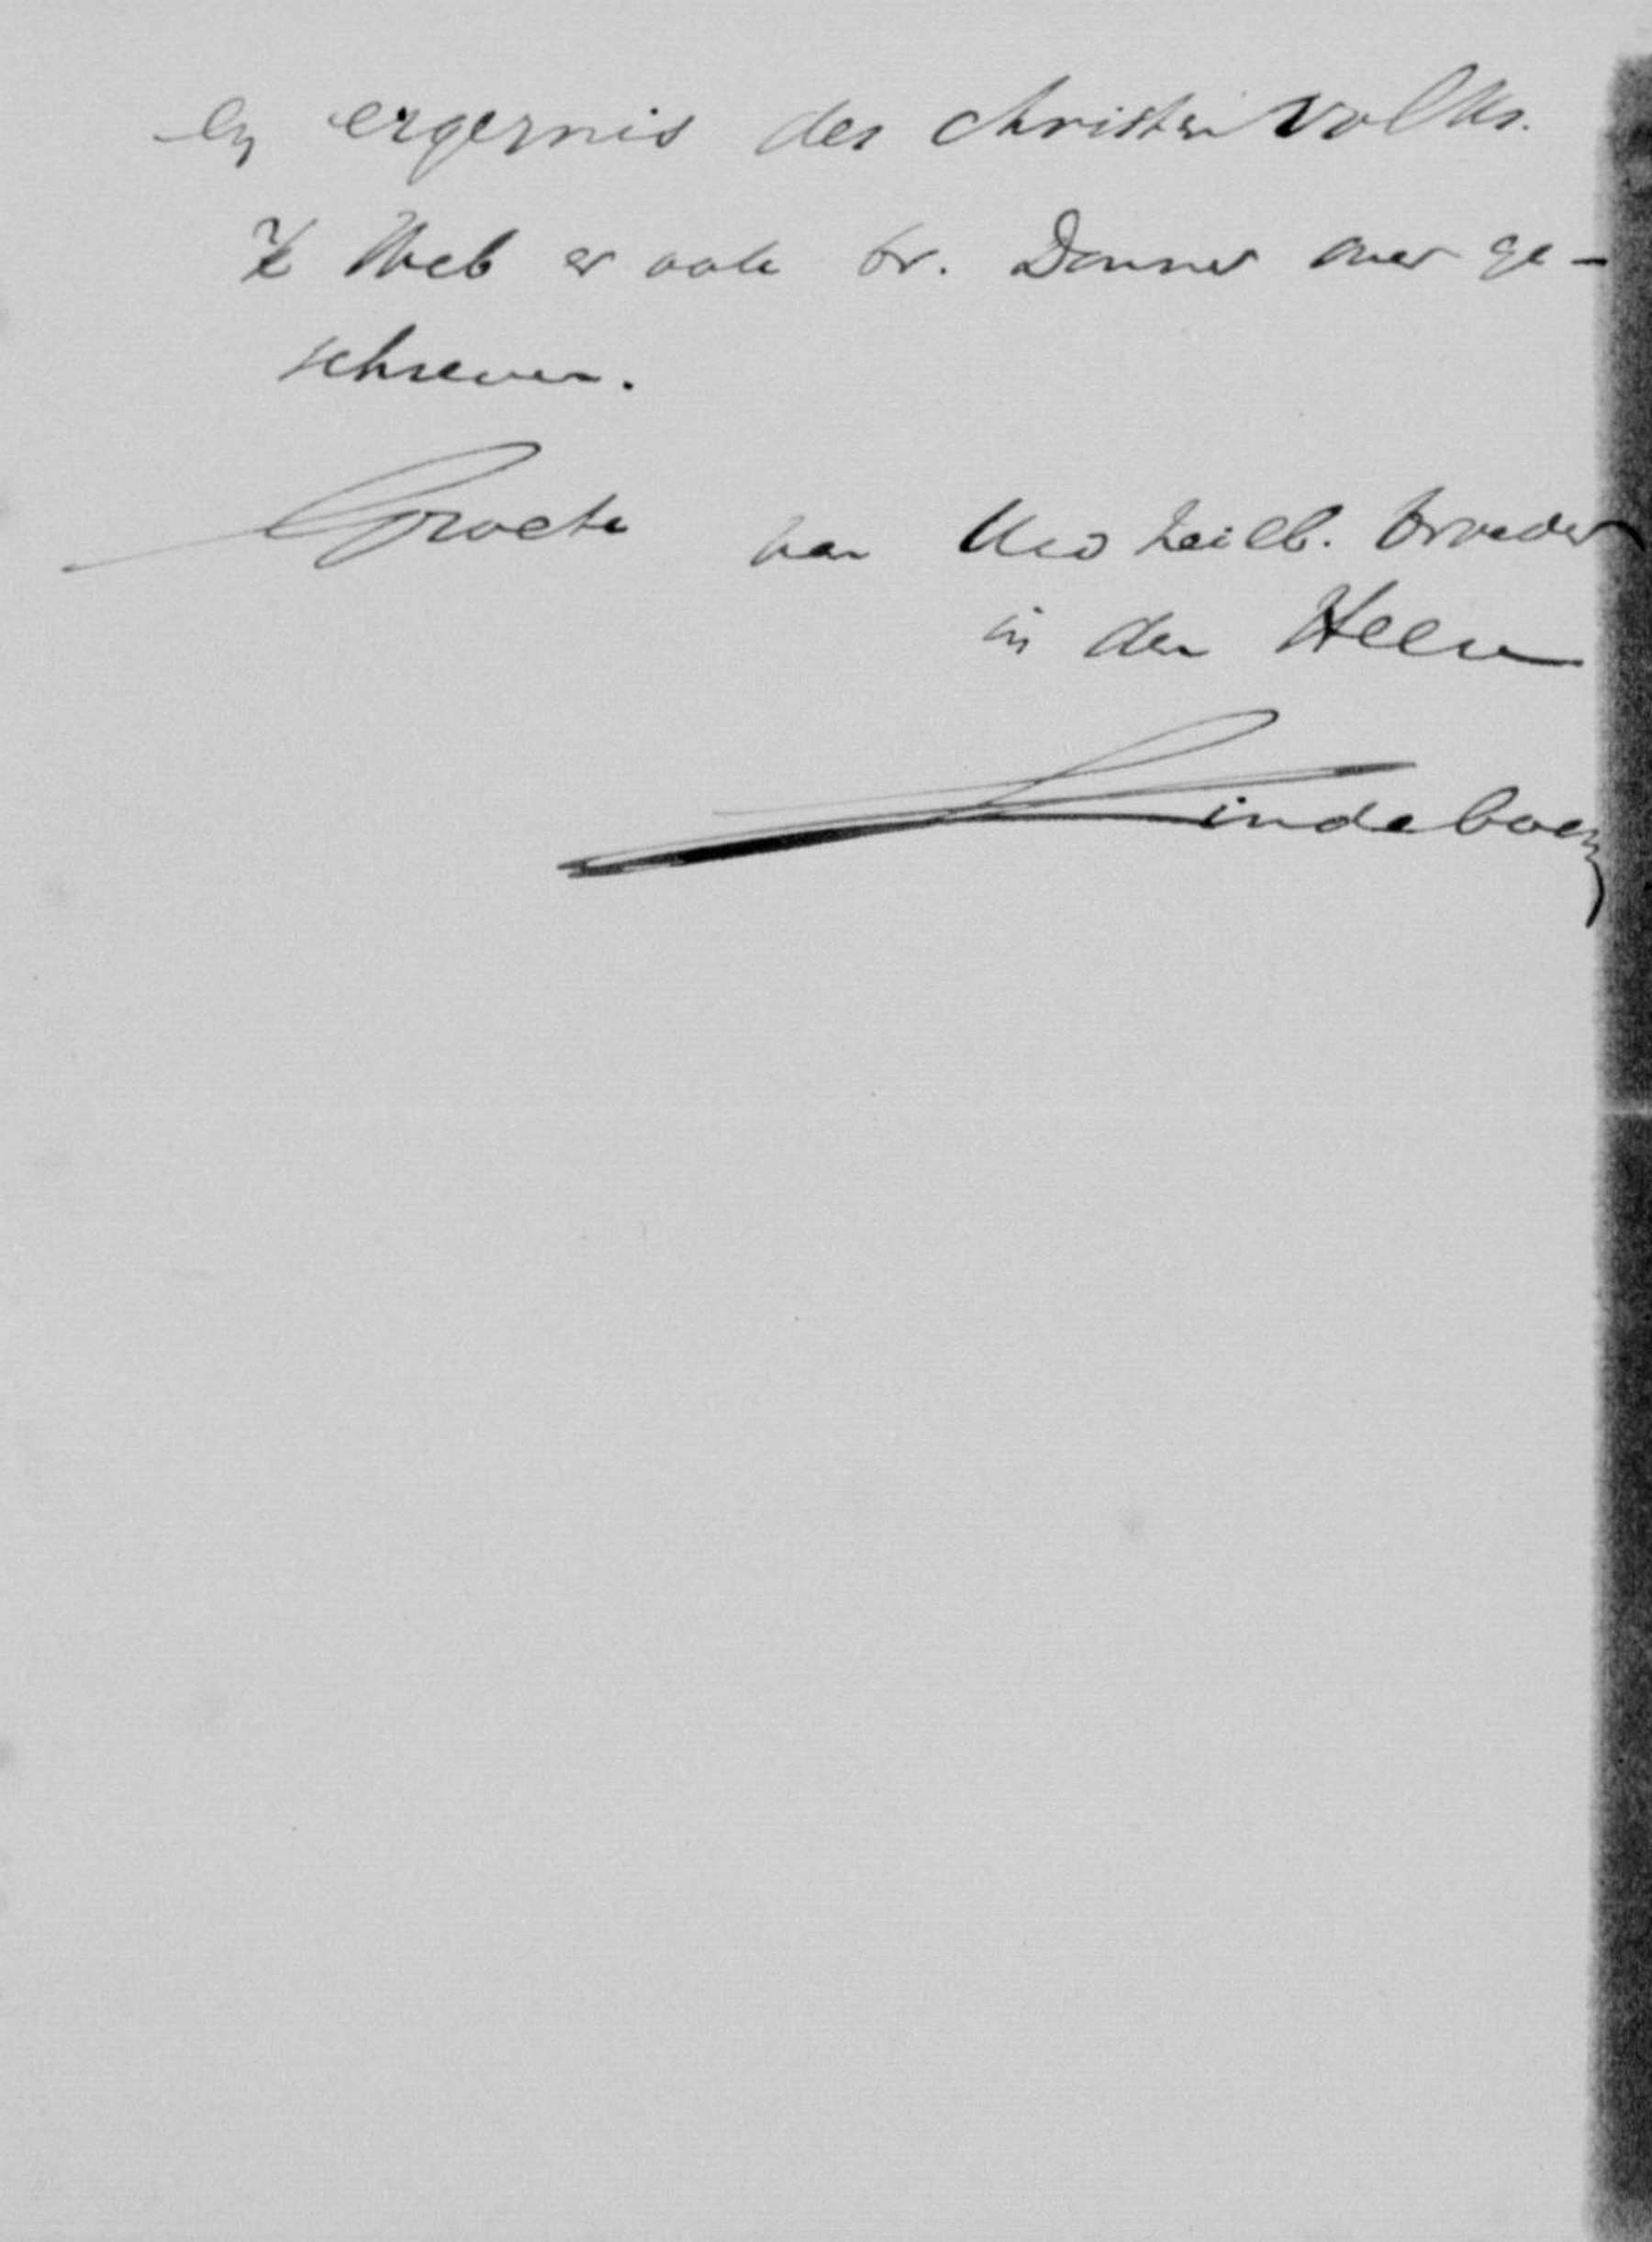 en ergernis des christenvolks.
Ik heb er ook br. Donner over ge-
schreven.
Groete van Uw heilb. broeder
in den Heere
Lindeboom